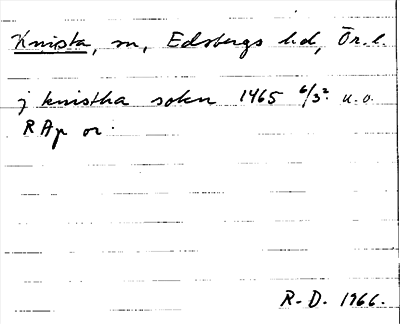 Knista, sn, Edsbergs hd, Ör. l.
j knistha sokn 1465 6/3² u.o.
RAp or:
R-D. 1966.